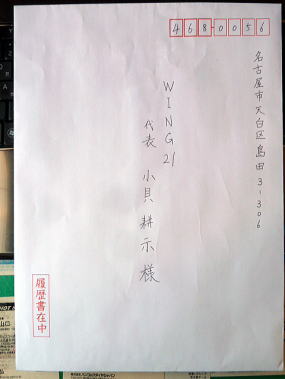 468-0056
名古屋市天白区島田3-306
WING21
代表 小貝 耕示 様
履歴書在中